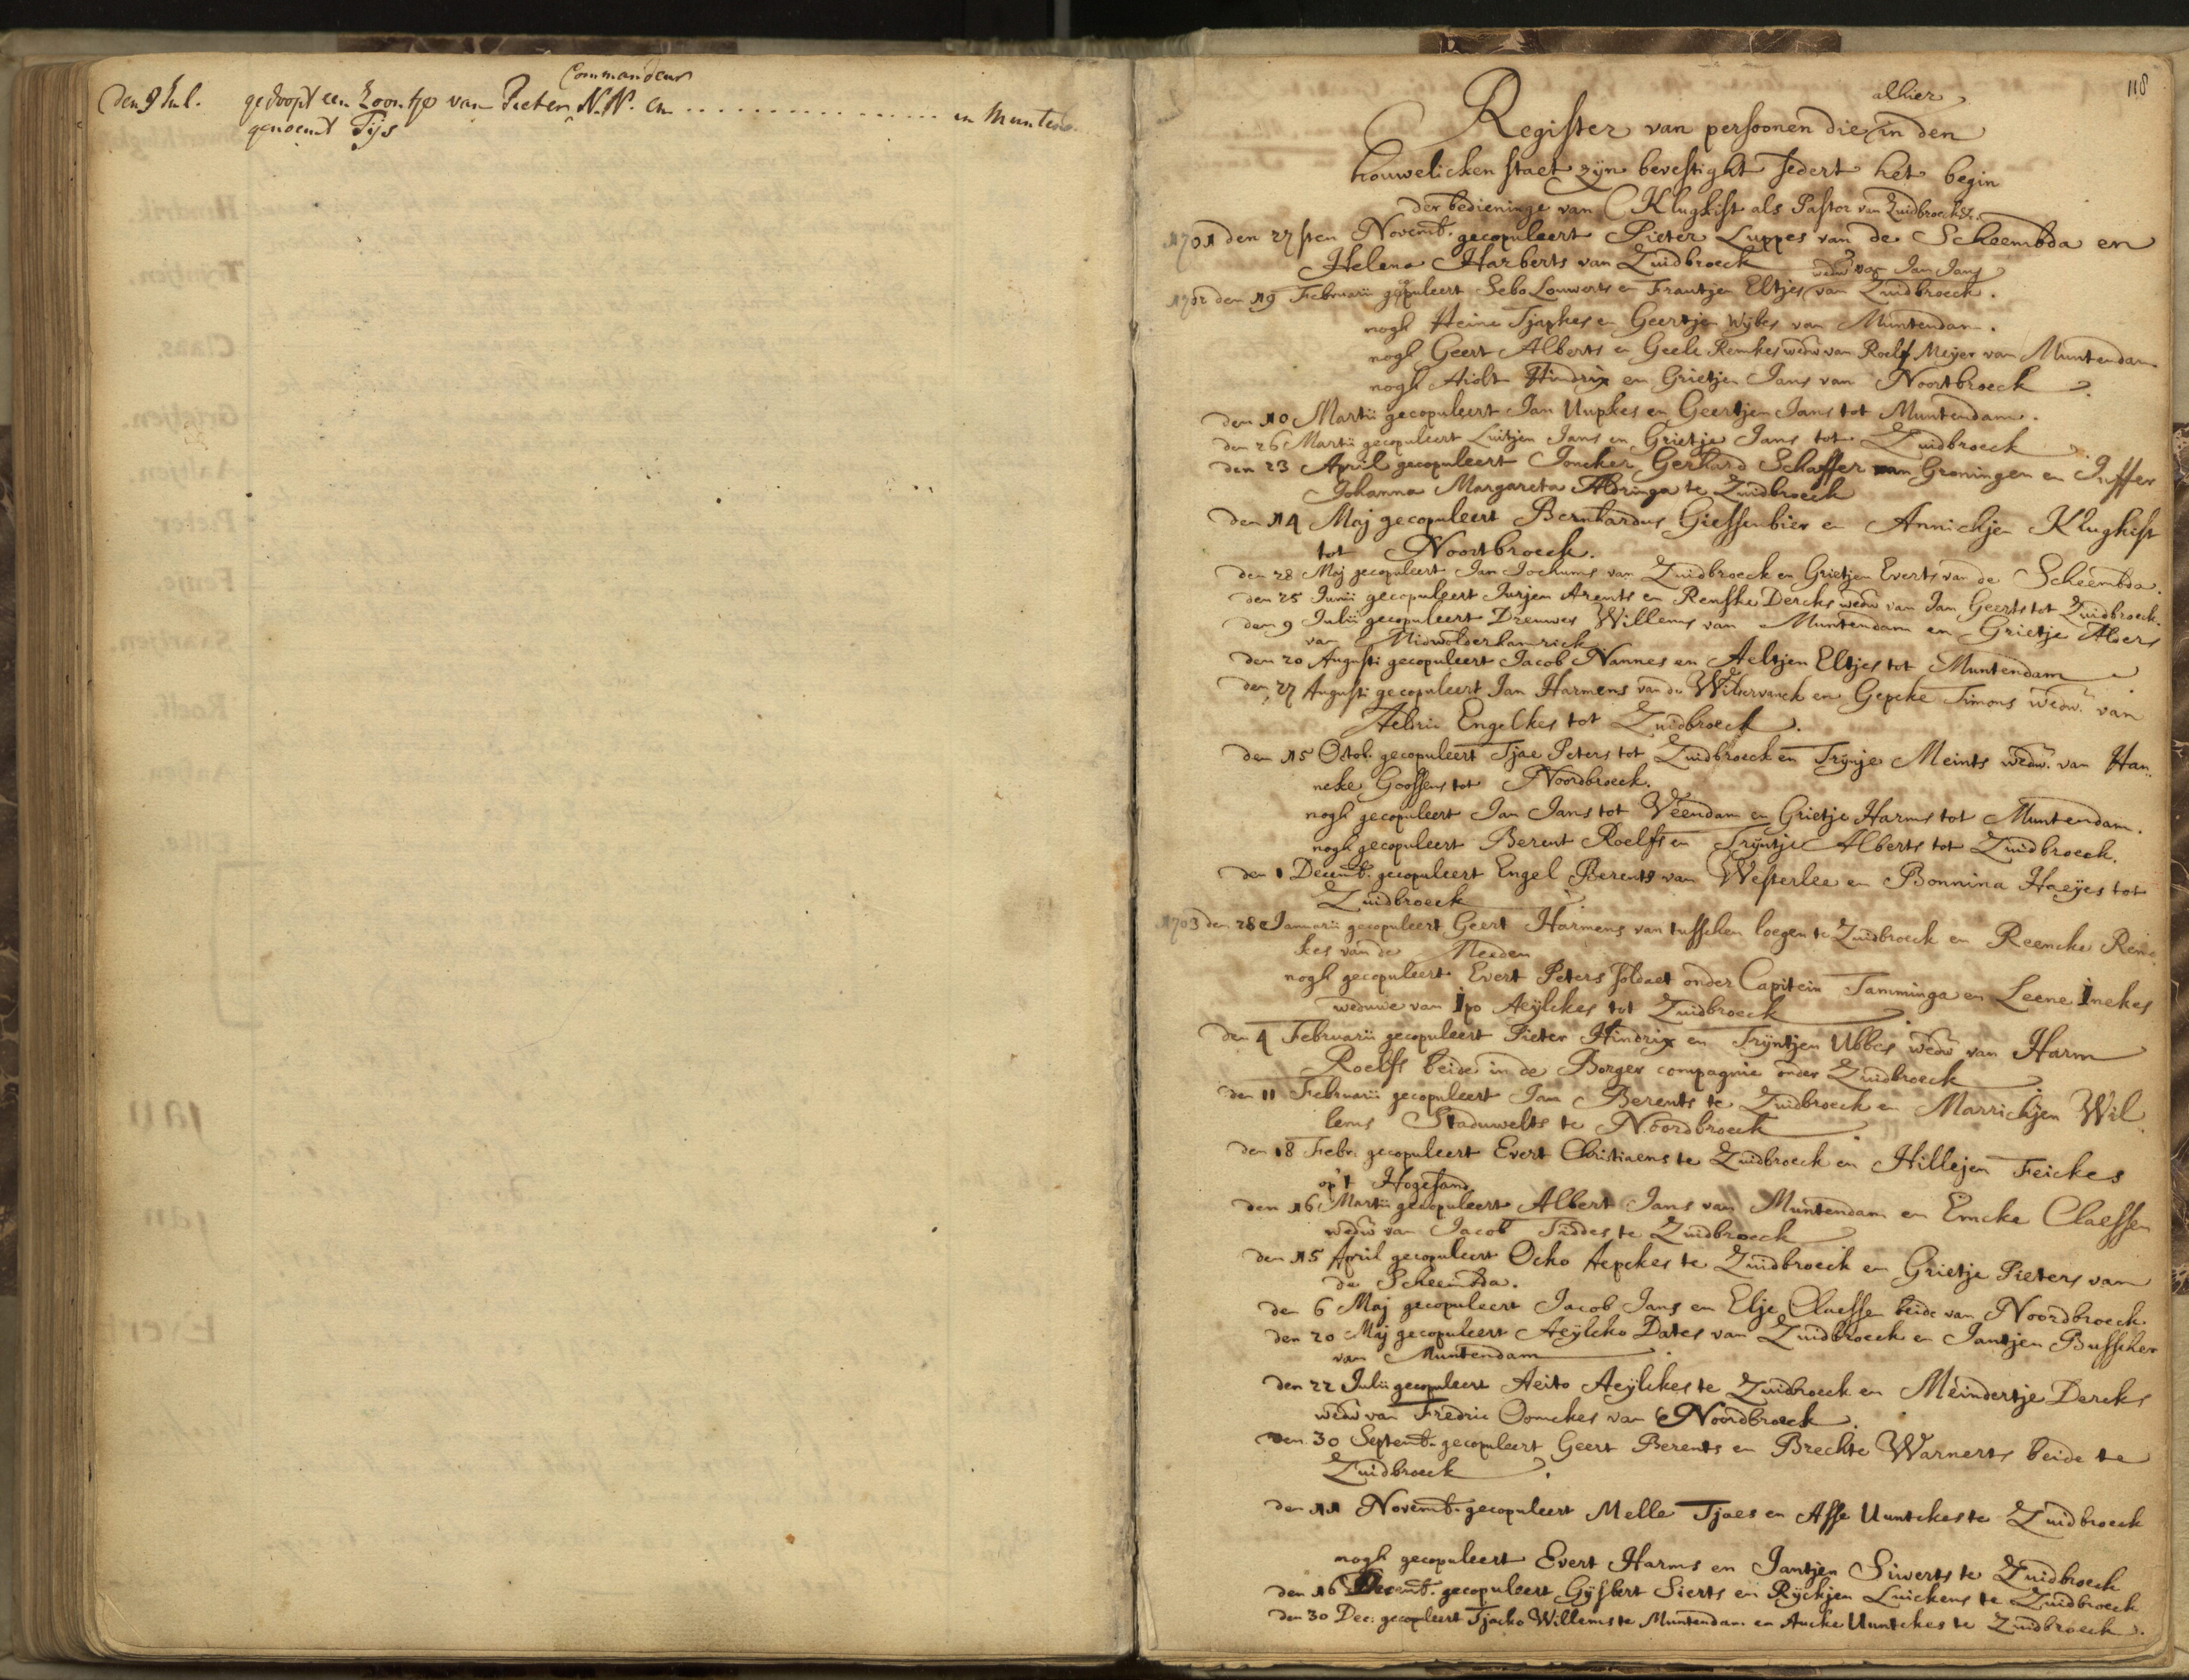 Commandeur
Den 9 Jul. gedoopt een Zoontje van Pieter N.N. en . . . . . . . . . . . . . . . in Muntend.
genoemt Tijs
118
alhier
Register van persoonen die in den
houwelicken staet zijn bevestight sedert het begin
der bedieninge van C Klughist als Pastor van Zuidbroeck &c.
1701 den 27sten Novemb. gecopuleert Pieter Luppes van de Scheembda en
Helena Harberts van Zuidbroeck
wedw van Jan Jans
1702 den 19 Februarii gecopuleert Sebo Louwerts en Frautjen Eltjes van Zuidbroeck.
nogh Heine Tjapkes en Geertjen Wybes van Muntendam.
nogh Geert Alberts en Geele Remkes wedw van Roelf Meijer van Muntendam
nogh Aiolt Hindrix en Grietjen Jans van Noortbroeck
den 10 Martii gecopuleert Jan Uupkes en Geertjen Jans tot Muntendam.
den 26 Martii gecopuleert Luitjen Jans en Grietje Jans tot Zuidbroeck
den 23 April gecopuleert Joncker Gerhard Schaffer van Groningen en Juffer
Johanna Margareta Aldringa te Zuidbroeck
den 14 Maj gecopuleert Bernhardus Giessenbier en Annichjen Klughist
tot Noortbroeck.
den 28 Maj gecopuleert Jan Jochums van Zuidbroeck en Grietjen Everts van de Scheembda.
den 25 Junii gecopuleert Jurjen Arents en Renske Dercks wedw van Jan Geerts tot Zuidbroeck.
den 9 Julii gecopuleert Dreuwes Willems van Muntendam en Grietje Alders
van Midwolderhamrick
den 20 Augusti gecopuleert Jacob Nannes en Aeltjen Eltjes tot Muntendam
den 27 Augusti gecopuleert Jan Harmens van de Wildervanck en Gepcke Timons wedw. van
Aebric Engelkes tot Zuidbroeck.
den 15 Octob. gecopuleert Tjae Peters tot Zuidbroeck en Trijnje Meints wedw. van Han
neke Goossens tot Noordbroeck.
nogh gecopuleert Jan Jans tot Veendam en Grietje Harms tot Muntendam.
nogh gecopuleert Berent Roelfs en Trijntje Alberts tot Zuidbroeck.
den 1 Decemb. gecopuleert Engel Berents van Westerlee en Bonnina Haeijes tot
Zuidbroeck
1703 den 28 Januarii gecopuleert Geert Harmens van tusschen loegen te Zuidbroeck en Reencke Rein
kes van de Meeden
nogh gecopuleert Evert Peters soldaet onder Capitein Tamminga en Leene Inekes
weduwe van Ipo Aeijlckes tot Zuidbroeck
den 4 Februarii gecopuleert Pieter Hindrix en Trijntjen Ubbes wedw van Harm
Roelfs beide in de Borger compagnie onder Zuidbroeck
den 11 Februarii gecopuleert Jan Berents te Zuidbroeck en Marrichjen Wil
lems Staduwelts te Noordbroeck
den 18 Febr. gecopuleert Evert Christiaens te Zuidbroeck en Hillejen Feickes
op't Hogesand
den 16 Martii gecopuleert Albert Jans van Muntendam en Emcke Claessen
wedw van Jacob Tiddes te Zuidbroeck
den 15 April gecopuleert Ocko Aepckes te Zuidbroeck en Grietje Pieters van
de Scheembda.
den 6 Maj gecopuleert Jacob Jans en Elje Claessen beide van Noordbroeck.
den 20 Maj gecopuleert Aeijlcko Dates van Zuidbroeck en Jantjen Busscher
van Muntendam
den 22 Julii gecopuleert Aeito Aeijlckes te Zuidbroeck en Meindertje Dercks
wedw van Fredric Oomckes van Noordbroeck.
den 30 Septemb. gecopuleert Geert Berents en Brechte Warnerts beide te
Zuidbroeck
den 11 Novemb. gecopuleert Melle Tjaes en Asse Uuntckes te Zuidbroeck
nogh gecopuleert Evert Harms en Jantjen Siwerts te Zuidbroeck
den 16 Decemb. gecopuleert Gijsbert Sierts en Rijckjen Luickens te Zuidbroeck
den 30 Dec. gecopuleert Tjacko Willems te Muntendam en Aucke Uuntckes te Zuidbroeck.